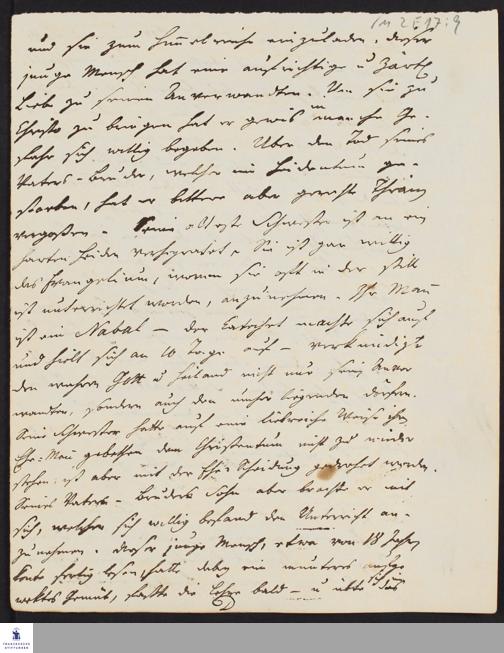 1M 2 E 17 : 9
und sie zum Himmelreiche einzuladen. Dieser
junge Mensch hat eine aufrichtige u zärtl
Liebe zu seinen Anverwandten. Um sie zu
Christo zu bringen hat er gewis in manche Ge-
fahr sich willig begeben. Über den Tod seines
Vaters-Bruder, welcher im Heidentum ge-
storben, hat er bittere aber gerechte Thränen
vergossen. Seine älteste Schwester ist an ein
harten Heiden verheyratet. Sie ist gar willig
das Evangelium, worin sie oft in der Stille
ist unterrichtet worden, anzunehmen. Ihr Mann
ist ein Nabal – der Catechet machte sich auf
und hielt sich an 10 Tage auf – verkündigte
den wahren Gott u Heiland nicht nur seinen Anver
wandten, sondern auch den umher liegenden Dörfern.
Seine Schwester hatte auf eine liebreiche Weise ihren
Ehe-Mann gebethen dem Christentum nicht zu wieder
stehen ist aber mit der Ehe-Scheidung gedrohet worden.
Seines Vaters-Bruders Sohn aber brachte er mit
sich, welcher sich willig befand den Unterricht an-
zunehmen. Dieser junge Mensch, etwa von 18 Jahren
konte fertig lesen, hatte dabey ein munteres aufge
wektes Gemüt, faßte die Lehre bald – u übte sich
FRANCKESCHE
STIFTUNGEN